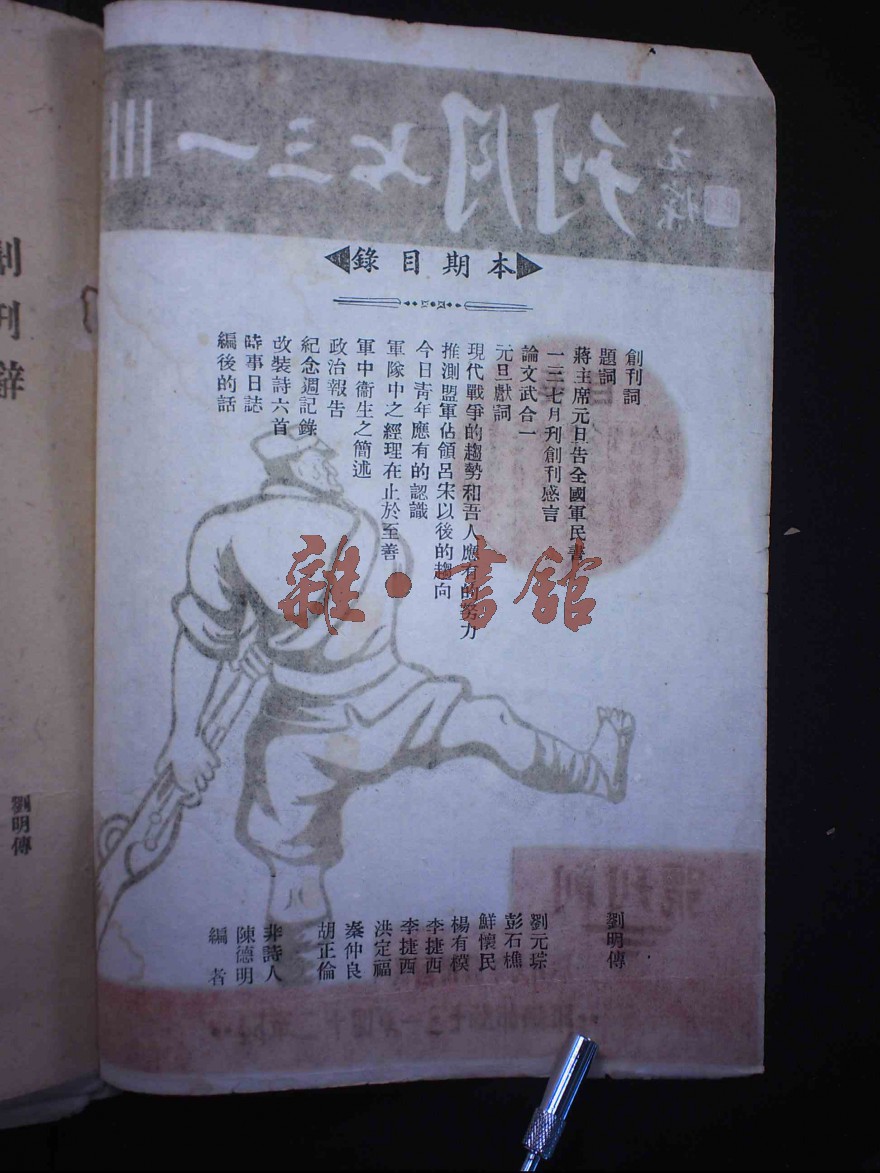 一三七月刊
本期目錄
創刊詞 劉明傳
題詞
蔣主席元日告全國軍民書
一三七月刊創刊感言 劉元琮
論文武合一 彭石樵
元旦獻詞 鮮懷民
現代戰爭的趨勢和吾人應有的努力 楊有模
推測盟軍佔領呂宋以後的趨向 李捷西
今日青年應有的認識 李捷西
軍隊中之經理在止於至善 洪定福
軍中衞生之簡述 秦仲良
政治報告 胡正倫
紀念週記錄
改裝詩六首 非詩人
時事日誌 陳德明
編後的話 編者
創刊號
雜·書館
創刊辭
劉明傳